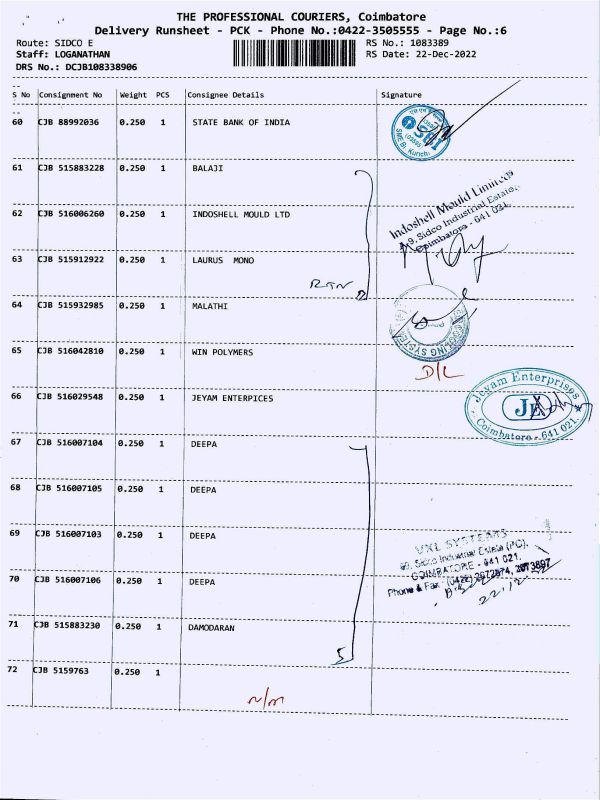 THE PROFESSIONAL COURIERS, Coimbatore
Delivery Runsheet - PCK - Phone No.:0422-3505555 - Page No.:6
Route: SIDCO E
RS No.: 1083389
Staff: LOGANATHAN
RS Date: 22-Dec-2022
DRS No.: DCJB108338906
S No Consignment No Weight PCS Consignee Details Signature
60 CJB 88992036 0.250 1 STATE BANK OF INDIA
SME Br. Kurichi
61 CJB 515883228 0.250 1 BALAJI
62 CJB 516006260 0.250 1 INDOSHELL MOULD LTD
Indoshell Mould Limited
A9, Sidco Industrial Estate,
Coimbatore - 641 021.
63 CJB 515912922 0.250 1 LAURUS MONO
64 CJB 515932985 0.250 1 MALATHI
65 CJB 516042810 0.250 1 WIN POLYMERS
D/L
66 CJB 516029548 0.250 1 JEYAM ENTERPICES
Jeyam Enterprises
JE
Coimbatore - 641 021.
67 CJB 516007104 0.250 1 DEEPA
68 CJB 516007105 0.250 1 DEEPA
69 CJB 516007103 0.250 1 DEEPA
VXL SYSTEMS
Sidco Industrial Estate (PO),
COIMBATORE - 641 021.
Phone & Fax : (0422) 2672874, 2673897
22.12
70 CJB 516007106 0.250 1 DEEPA
71 CJB 515883230 0.250 1 DAMODARAN
5
72 CJB 5159763 0.250 1
N/M